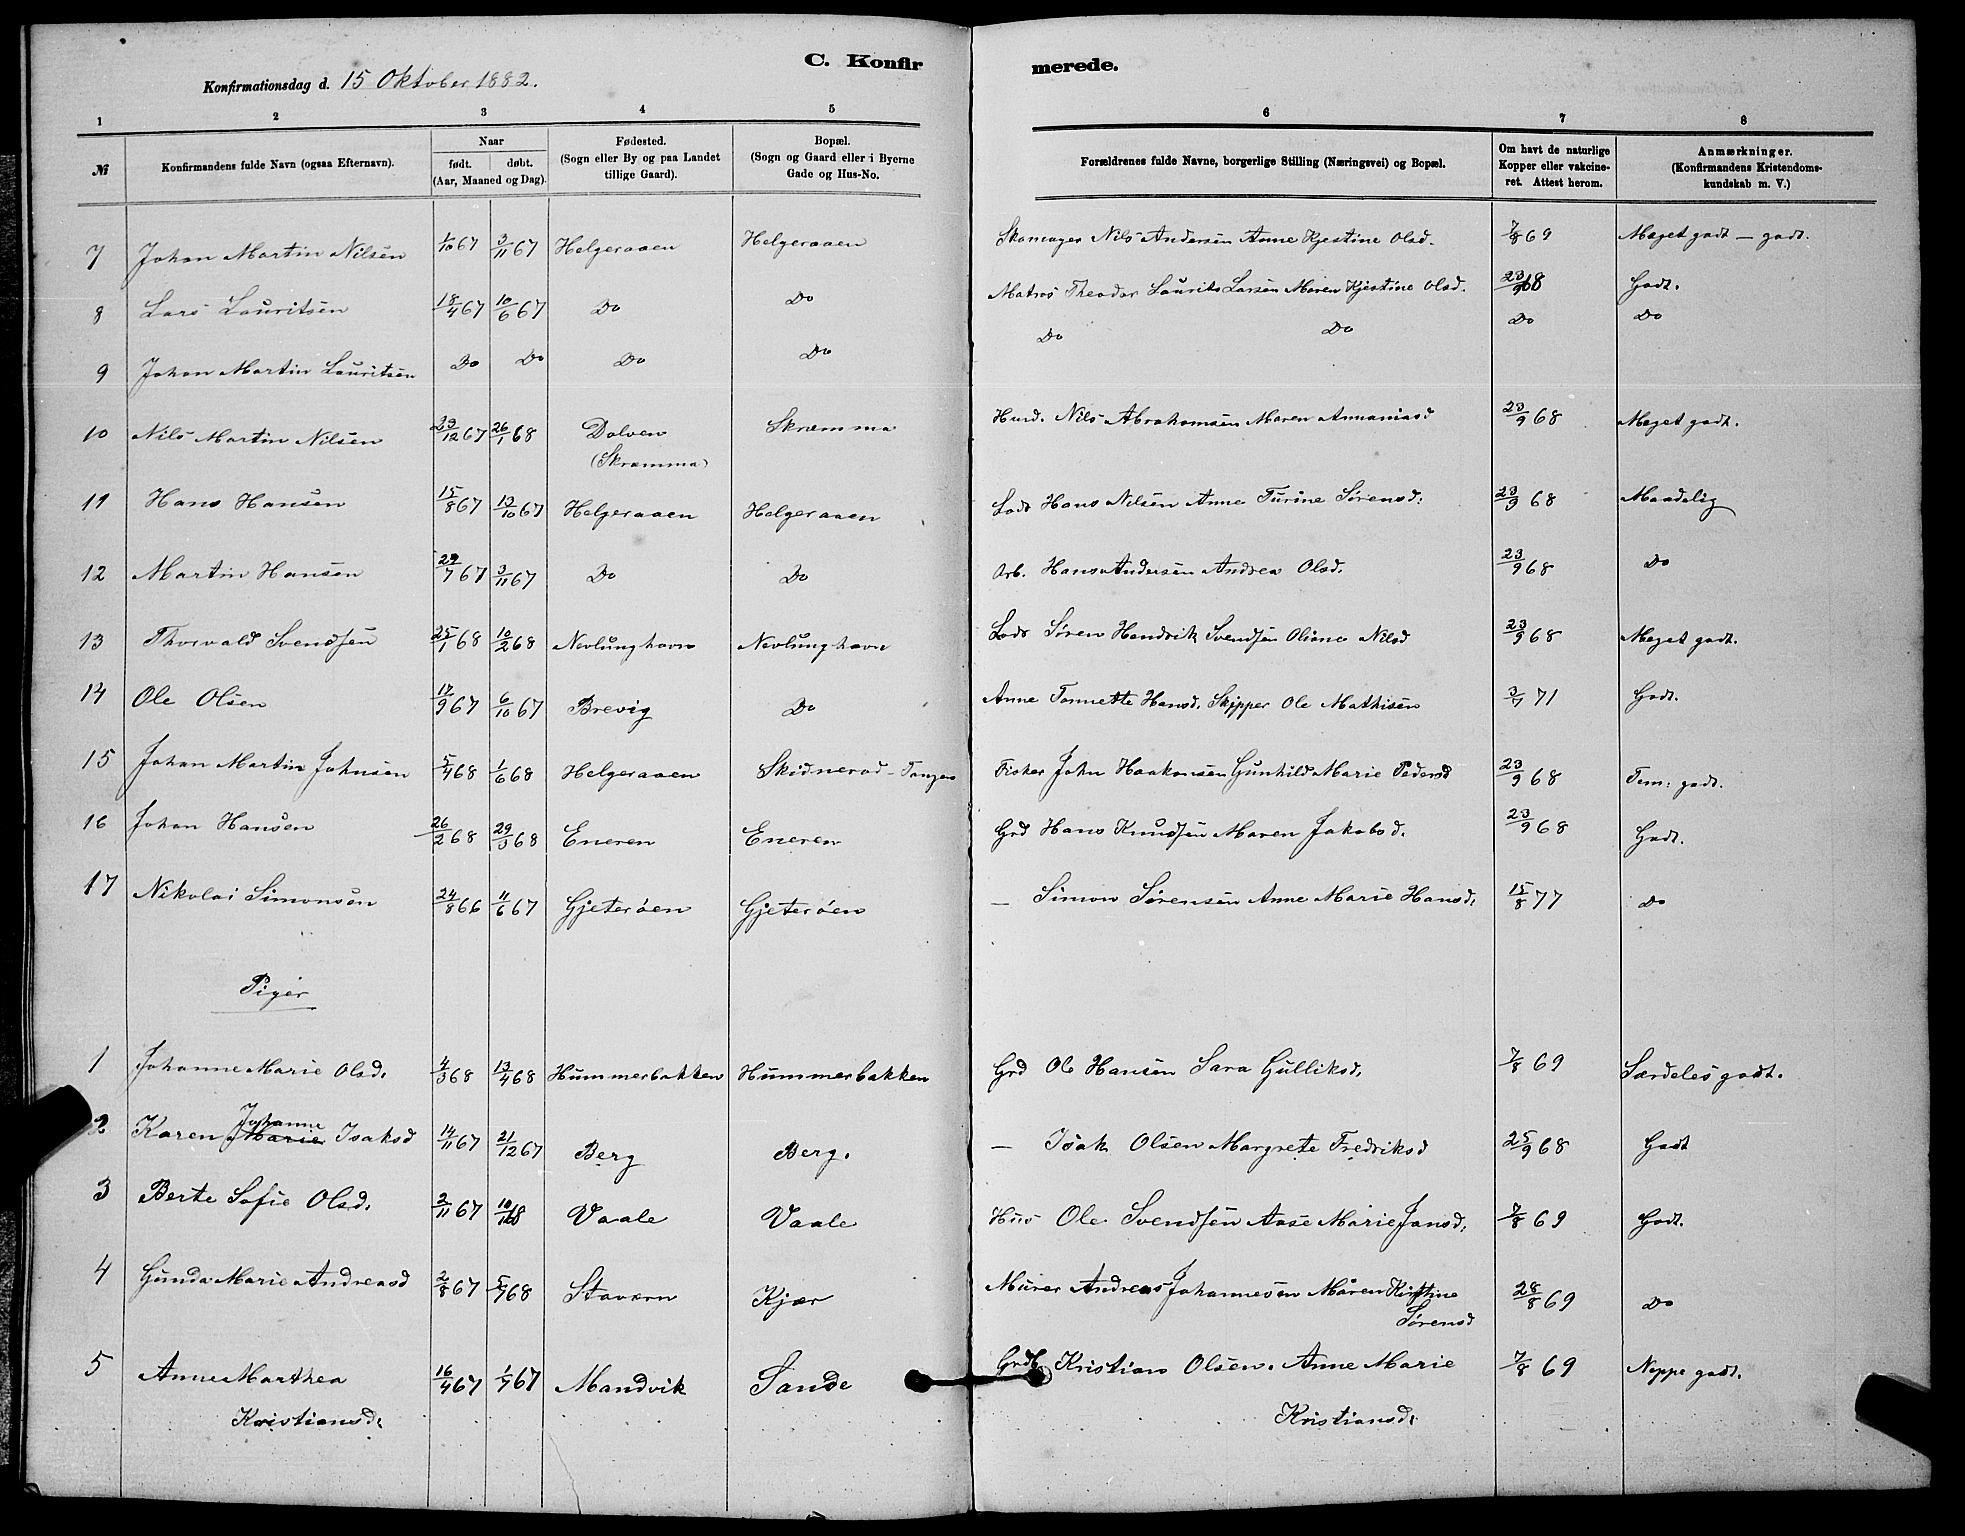 C. Konfirmerede.
Konfirmationsdag d. 15 Oktober 1882.
1 2 3 4 5 6 7 8
№ Konfirmandens fulde Navn (ogsaa Efternavn). Naar født. døbt. (Aar, Maaned og Dag). Fødested. (Sogn eller By og paa Landet tillige Gaard). Bopæl. (Sogn og Gaard eller i Byerne Gade og Hus-No. Forældrenes fulde Navne, borgerlige Stilling (Næringsvei) og Bopæl. Om havt de naturlige Kopper eller vakcineret. Attest herom. Anmærkninger. (Konfirmandens Kristendomskundskab m. V.)
7 Johan Martin Nilsen 1/10 67 3/11 67 Helgeraaen Helgeraaen Skomager Nils Andersen Anne Kjestine Olsd. 7/8 69 Meget godt - godt.
8 Lars Lauritsen 18/4 67 10/6 67 Do Do Matros Theodor Laurits Larsen Maren Kjestine Olsd. 23/9 68 Godt.
9 Johan Martin Lauritsen Do Do Do Do Do Do Do Do
10 Nils Martin Nilsen 23/12 67 26/1 68 Dolven (Skramma) Skræmma Husd. Nils Abrahamsen Maren Annaniasd 23/9 68 Meget godt.
11 Hans Hansen 15/8 67 13/10 67 Helgeraaen Helgeraaen Lods Hans Nilsen Anne Turine Sørensd: 23/9 68 Maadelig
12 Martin Hansen 29/7 67 3/11 67 Do Do Arb. Hans Andersen Andrea Olsd. 23/9 68 Do
13 Thorvald Svendsen 25/1 68 10/2 68 Nevlunghavn Nevlunghavn Lods Søren Hendrik Svendsen Oline Nilsd 23/9 68 Meget godt.
14 Ole Olsen 17/9 67 6/10 67 Brevig Do Anne Tonnette Hansd. Skipper Ole Mathisen 3/7 71 Godt.
15 Johan Martin Johnsen 5/4 68 1/6 68 Helgeraaen Skidnerod - Tangen Fisker John Haakonsen Gunhild Marie Pedersd 23/9 68 Tem: godt.
16 Johan Hansen 26/2 68 29/3 68 Eneren Eneren Grd Hans Knudsen Maren Jakobsd. 23/9 68 Godt.
17 Nikolai Simonsen 24/8 66 11/6 67 Gjeterøen Gjeterøen — Simon Sørensen Anne Marie Hansd. 15/8 77 Do
Piger
1 Johanne Marie Olsd. 4/3 68 13/4 68 Hummerbakken Hummerbakken Grd Ole Hansen Sara Gulliksd. 7/8 69 Særdeles godt.
2 Karen Johanne Marie Isaksd 14/11 67 21/12 67 Berg Berg. — Isak Olsen Margrete Fredriksd 25/9 68 Godt
3 Berte Sofie Olsd. 2/11 67 Vaale Vaale Hus Ole Svendsen Aase Marie Jansd. 7/8 69 Godt.
4 Gunda Marie Andreasd 2/8 67 5/7 68 Stavern Kjær Murer Andreas Johannesen Maren Kirstine Sørensd 28/8 69 Do
5 Anne Marthea Kristiansd. 16/4 67 1/7 67 Mandvik Sande Grdb. Kristian Olsen. Anne Marie Kristiansd. 7/8 69 Neppe godt.